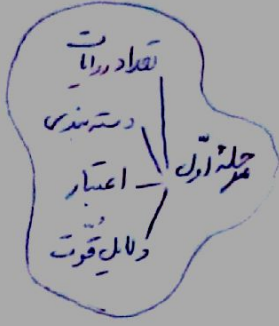 مرحلهٔ اوّل
تعداد روایات
دسته بندی
اعتبار
دلایل قُوّت